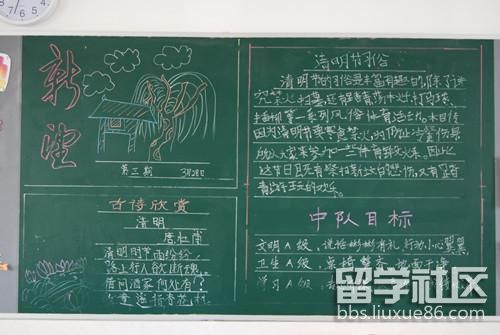 新望
第三期 3月28日
古诗欣赏
清明
唐杜甫
清明时节雨纷纷,
路上行人欲断魂。
借问酒家何处有?
牧童遥指杏花村。
清明节习俗
清明节的习俗是丰富有趣的,除了讲
究禁火扫墓,还有踏青荡秋千打马球、
插柳等一系列风俗体育活动。相传
因为清明节要寒食禁火,为了防止寒食伤身
所以大家来参加一些体育锻炼。因此
这节日既有祭扫新坟的悲伤,又有踏青
游玩的欢乐。
中队目标
文明A级,说话彬彬有礼,行动小心翼翼
卫生A级,桌椅整齐,地面干净
学习A级,
留学社区
bbs.liuxue86.com